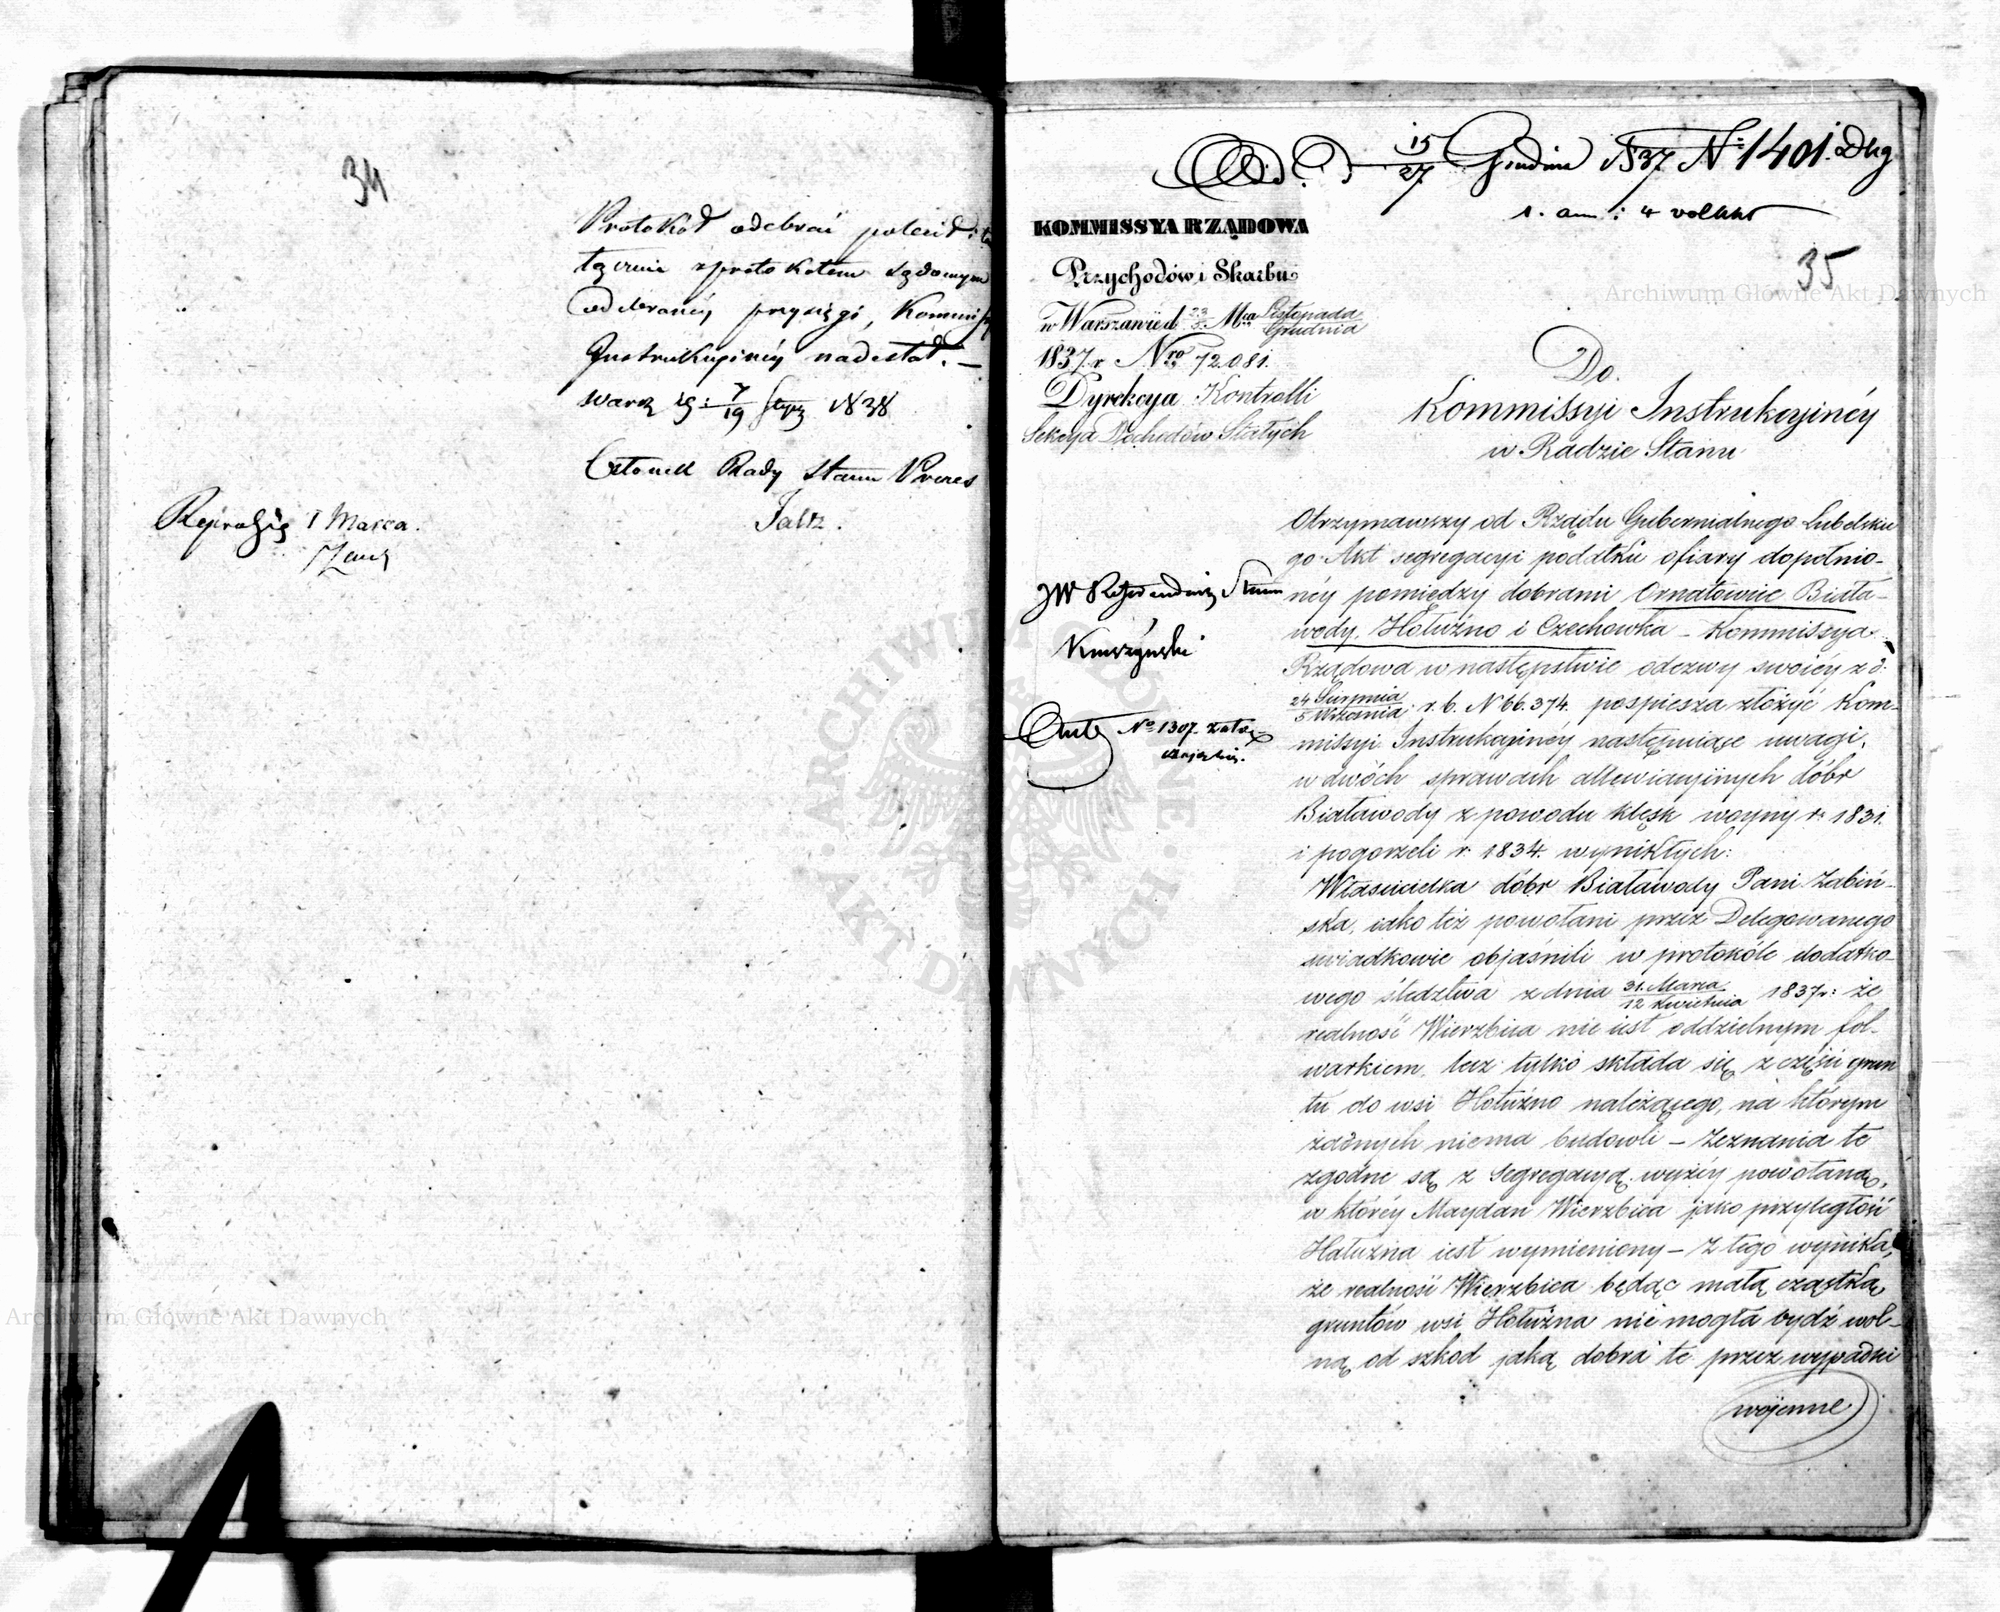 34
Protokół odebrać polecił i ta
łącznie z protokółem sądowym
odebranéy przysięgi, Kommissyi
Instrukcyinéy nadesłał. —
Warsz. d: 7/19 Stycz 1838
Członek Rady Stanu Prezes
Faltz.
1 Marca.
Od. d 15/27 Grudnia 1837 N: 1401. Dkg
35
KOMMISSYA RZĄDOWA
Przychodów i Skarbu
w Warszawie d. 23/5 Mca Listopada/Grudnia
1837. r. Nro 72.081.
Dyrekcya Kontrolli
Sekcya Dochodów Stałych
Do.
Kommissyi Instrukcyinéy
w Radzie Stanu
JW Referendarz Stanu
Ante No 1307.
Otrzymawszy od Rządu Gubernialnego Lubelskie
go Akt segregacyi podatku ofiary dopełnio-
néy pomiędzy dobrami Ornatowice Biała-
wody, Hołużno i Czechowka – Kommissya
Rządowa w następstwie odezwy swoiéy z d:
24 Sierpnia/5 Września r. b. N 66.374. pospiesza złożyć Kom-
missyi Instrukcyinéy następuiące uwagi,
w dwóch sprawach allewiacyinych dóbr
Białawody z powodu klęsk woyny r. 1831.
i pogorzeli r. 1834. wynikłych:
Właścicielka dóbr Białawody Pani Żabiń-
ska, iako też powołani przez Delegowanego
świadkowie objaśnili w protokóle dodatko-
wego śledztwa z dnia 31. Marca/12 Kwietnia 1837 r: że
realność Wierzbica nie iest oddzielnym fol-
warkiem, lecz tylko składa się z części grun
tu do wsi Hołużno należącego, na którym
żadnych niema budowli – Zeznania te
zgodne są z segregacyą wyżéy powołaną,
w któréy Maydan Wierzbica jako przyległość
Hołużna iest wymieniony – Z tego wynika,
że realność Wierzbica będąc małą cząstką
gruntów wsi Hołużna nie mogła bydź wol-
ną od szkod jaką dobra te przez wypadki
wojenne
Archiwum Główne Akt Dawnych
Archiwum Główne Akt Dawnych
ARCHIWUM GŁÓWNE AKT DAWNYCH